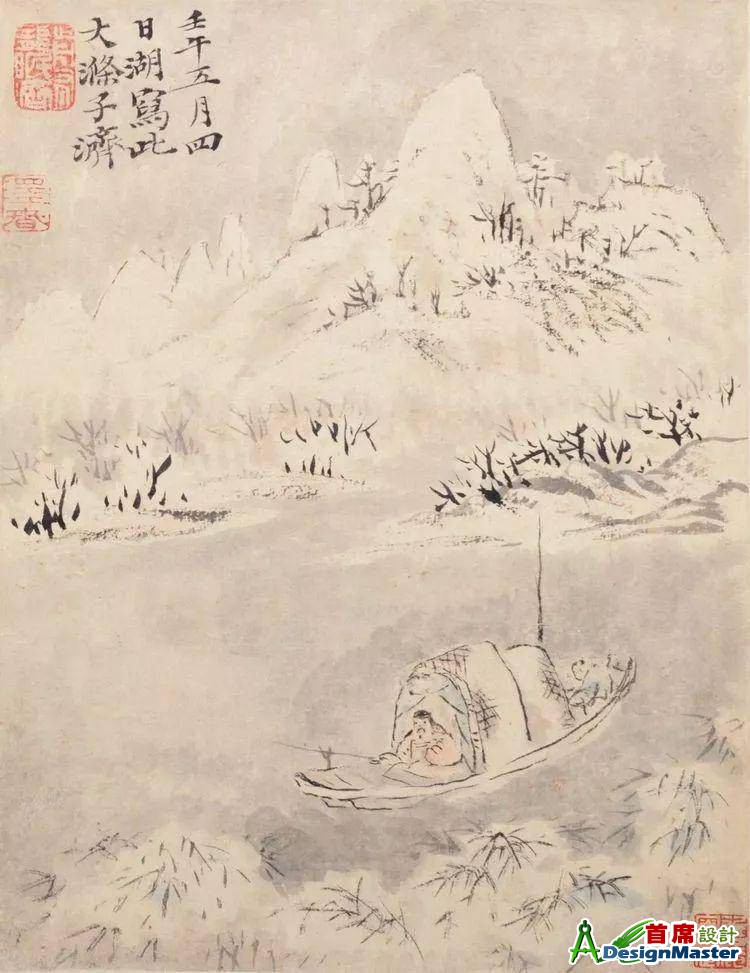 壬午五月四
日湖寫此
大滌子濟
首席設計
ADesignMaster